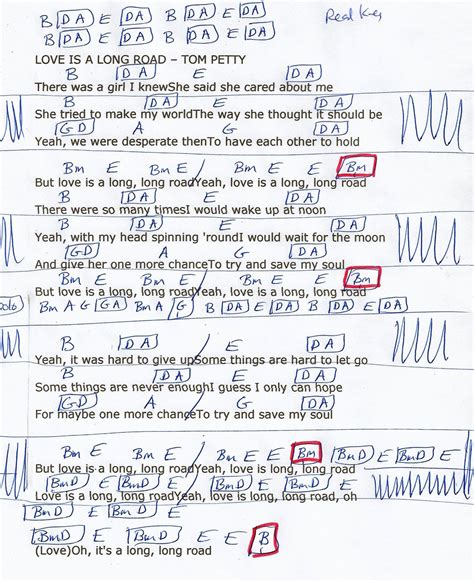 B DA E DA B DA E DA Real Key
B DA E DA B DA E DA
LOVE IS A LONG ROAD – TOM PETTY
B DA E DA
There was a girl I knewShe said she cared about me
B DA E DA
She tried to make my worldThe way she thought it should be
GD A G DA
Yeah, we were desperate thenTo have each other to hold
Bm E Bm E / Bm E E Bm
But love is a long, long roadYeah, love is a long, long road
B DA E DA
There were so many timesI would wake up at noon
B DA E DA
Yeah, with my head spinning 'roundI would wait for the moon
GD A G DA
And give her one more chanceTo try and save my soul
Bm E Bm E / Bm E E Bm
But love is a long, long roadYeah, love is a long, long road
Solo) Bm A G GA Bm A / G B DA E DA B DA E DA
B DA E DA
Yeah, it was hard to give upSome things are hard to let go
B DA E DA
Some things are never enoughI guess I only can hope
GD A G DA
For maybe one more chanceTo try and save my soul
Bm E Bm E / Bm E E Bm BmD E BmD E
But love is a long, long roadYeah, love is long, long road
BmD E BmD E BmD E BmD E
Love is a long, long roadYeah, love is long, long road, oh
BmD E BmD E
BmD E BmD E E E B
(Love)Oh, it's a long, long road